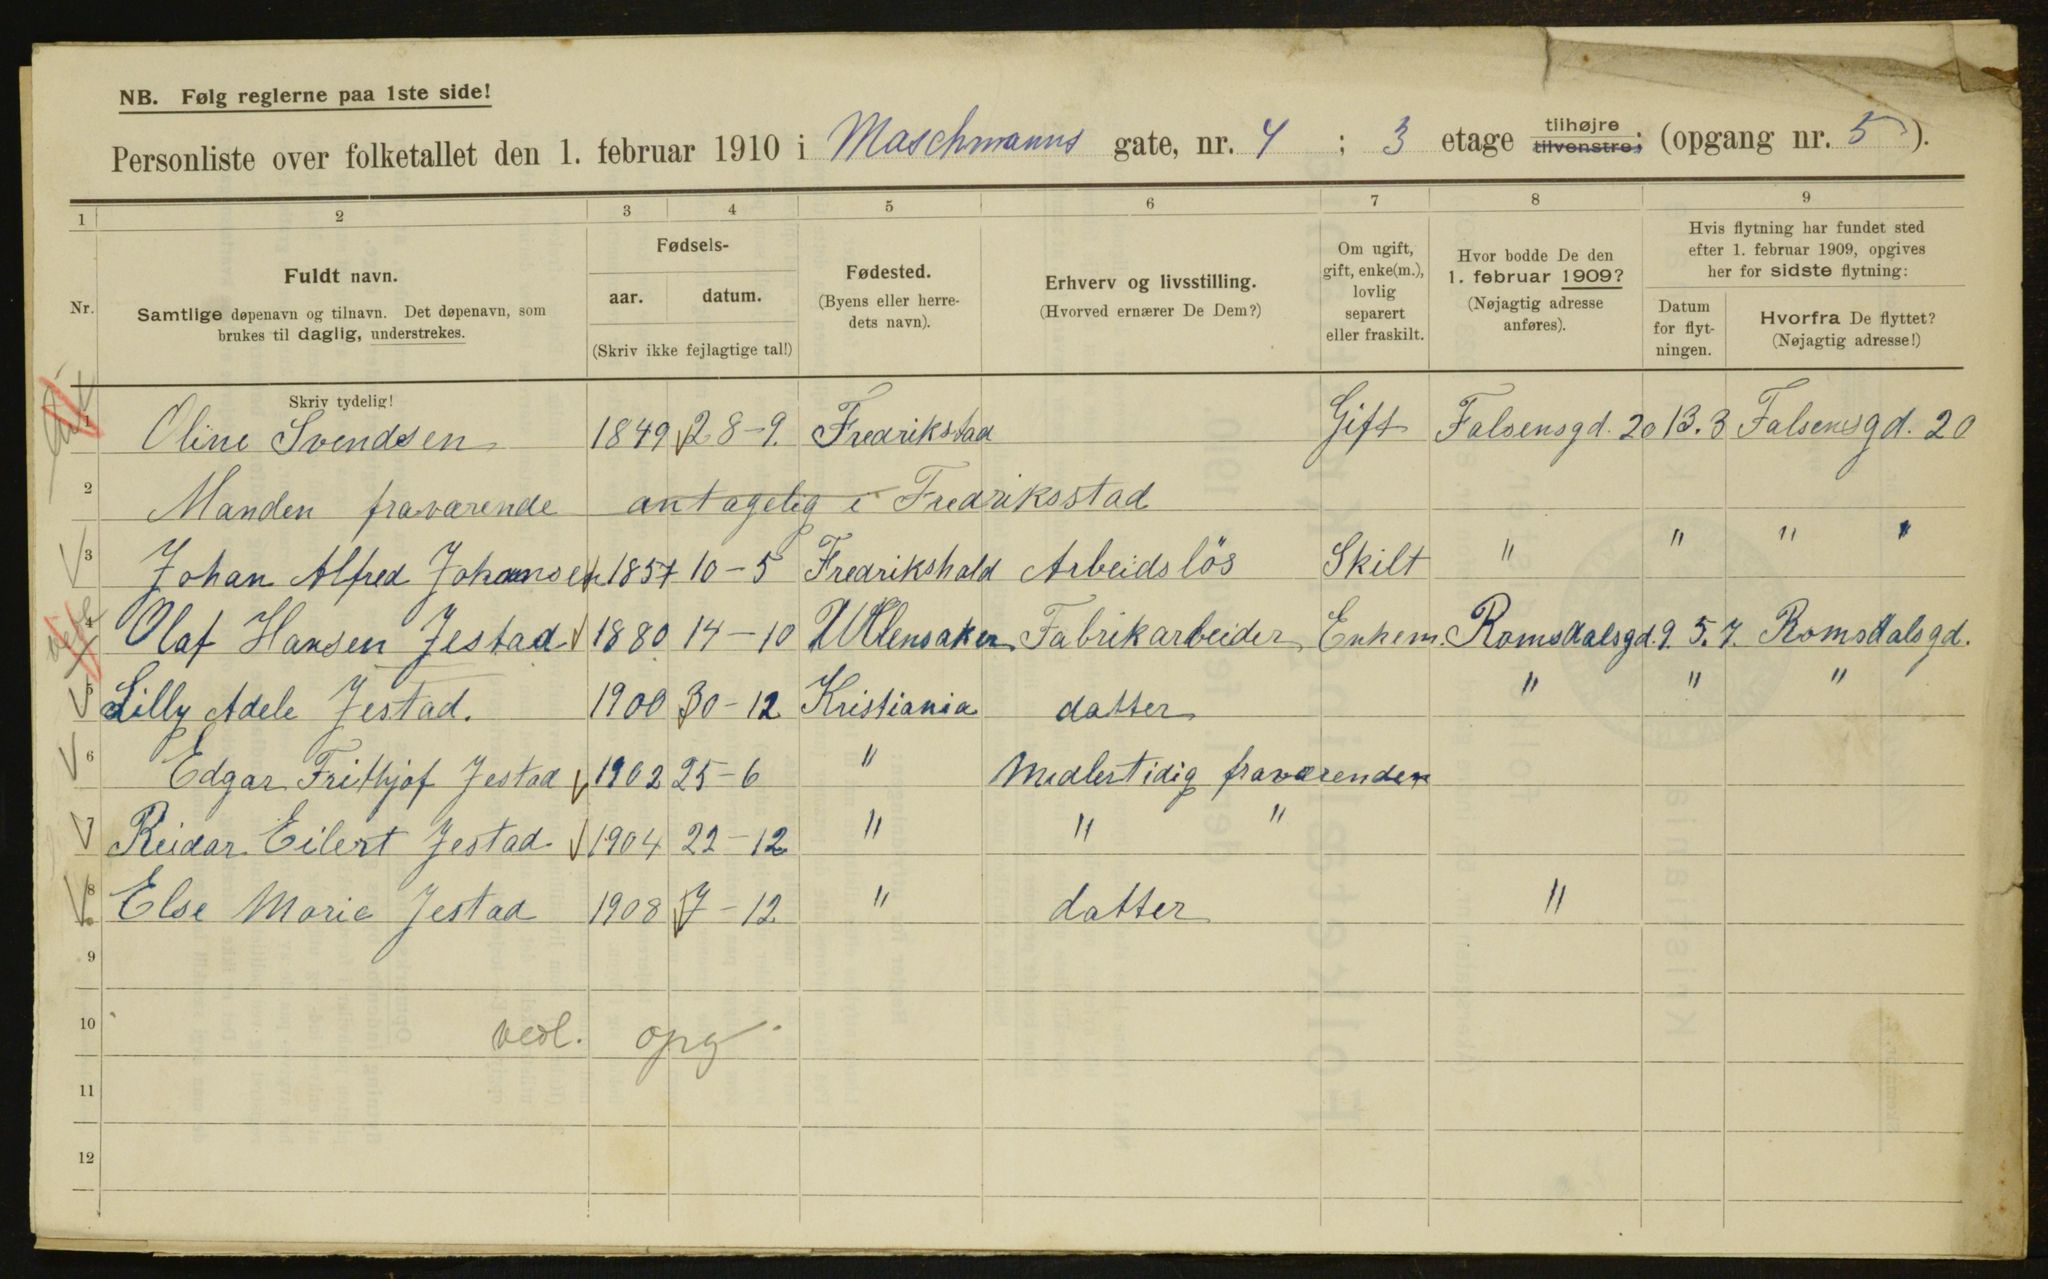 NB. Følg reglerne paa 1ste side!
Personliste over folketallet den 1. februar 1910 i Maschmanns gate, nr. 4 ; 3 etage tilhøjre tilvenstre; (opgang nr. 5 ).
1 2 3 4 5 6 7 8 9
Nr.
Fuldt navn.
Samtlige døpenavn og tilnavn. Det døpenavn, som
brukes til daglig, understrekes.
Fødsels-
aar. datum.
(Skriv ikke fejlagtige tal!)
Fødested.
(Byens eller herre-
dets navn).
Erhverv og livsstilling.
(Hvorved ernærer De Dem?)
Om ugift,
gift, enke(m.),
lovlig
separert
eller fraskilt.
Hvor bodde De den
1. februar 1909?
(Nøjagtig adresse
anføres).
Hvis flytning har fundet sted
efter 1. februar 1909, opgives
her for sidste flytning:
Datum
for flyt-
ningen.
Hvorfra De flyttet?
(Nøjagtig adresse!)
Skriv tydelig!
1 Oline Svendsen 1849 28-9. Fredrikstad Gift Falsensgd. 20 13.3 Falsensgd. 20
2 Manden fraværende antagelig i Fredriksstad
3 Johan Alfred Johansen 1857 10-5 Fredrikshald Arbeidsløs Skilt " " " "
4 Olaf Hansen Jestad 1880 14-10 Ullensaker Fabrikarbeider Enkem. Romsdalsgd. 9. 5.7. Romsdalsgd.
5 Lilly Adele Jestad. 1900 30-12 Kristiania datter " " "
6 Edgar Frithjof Jestad 1902 25-6 " Midlertidig fraværenden
7 Reidar Eilert Jestad 1904 22-12 " " "
8 Else Marie Jestad 1908 7-12 " datter "
9
10 vedl. opg
11
12